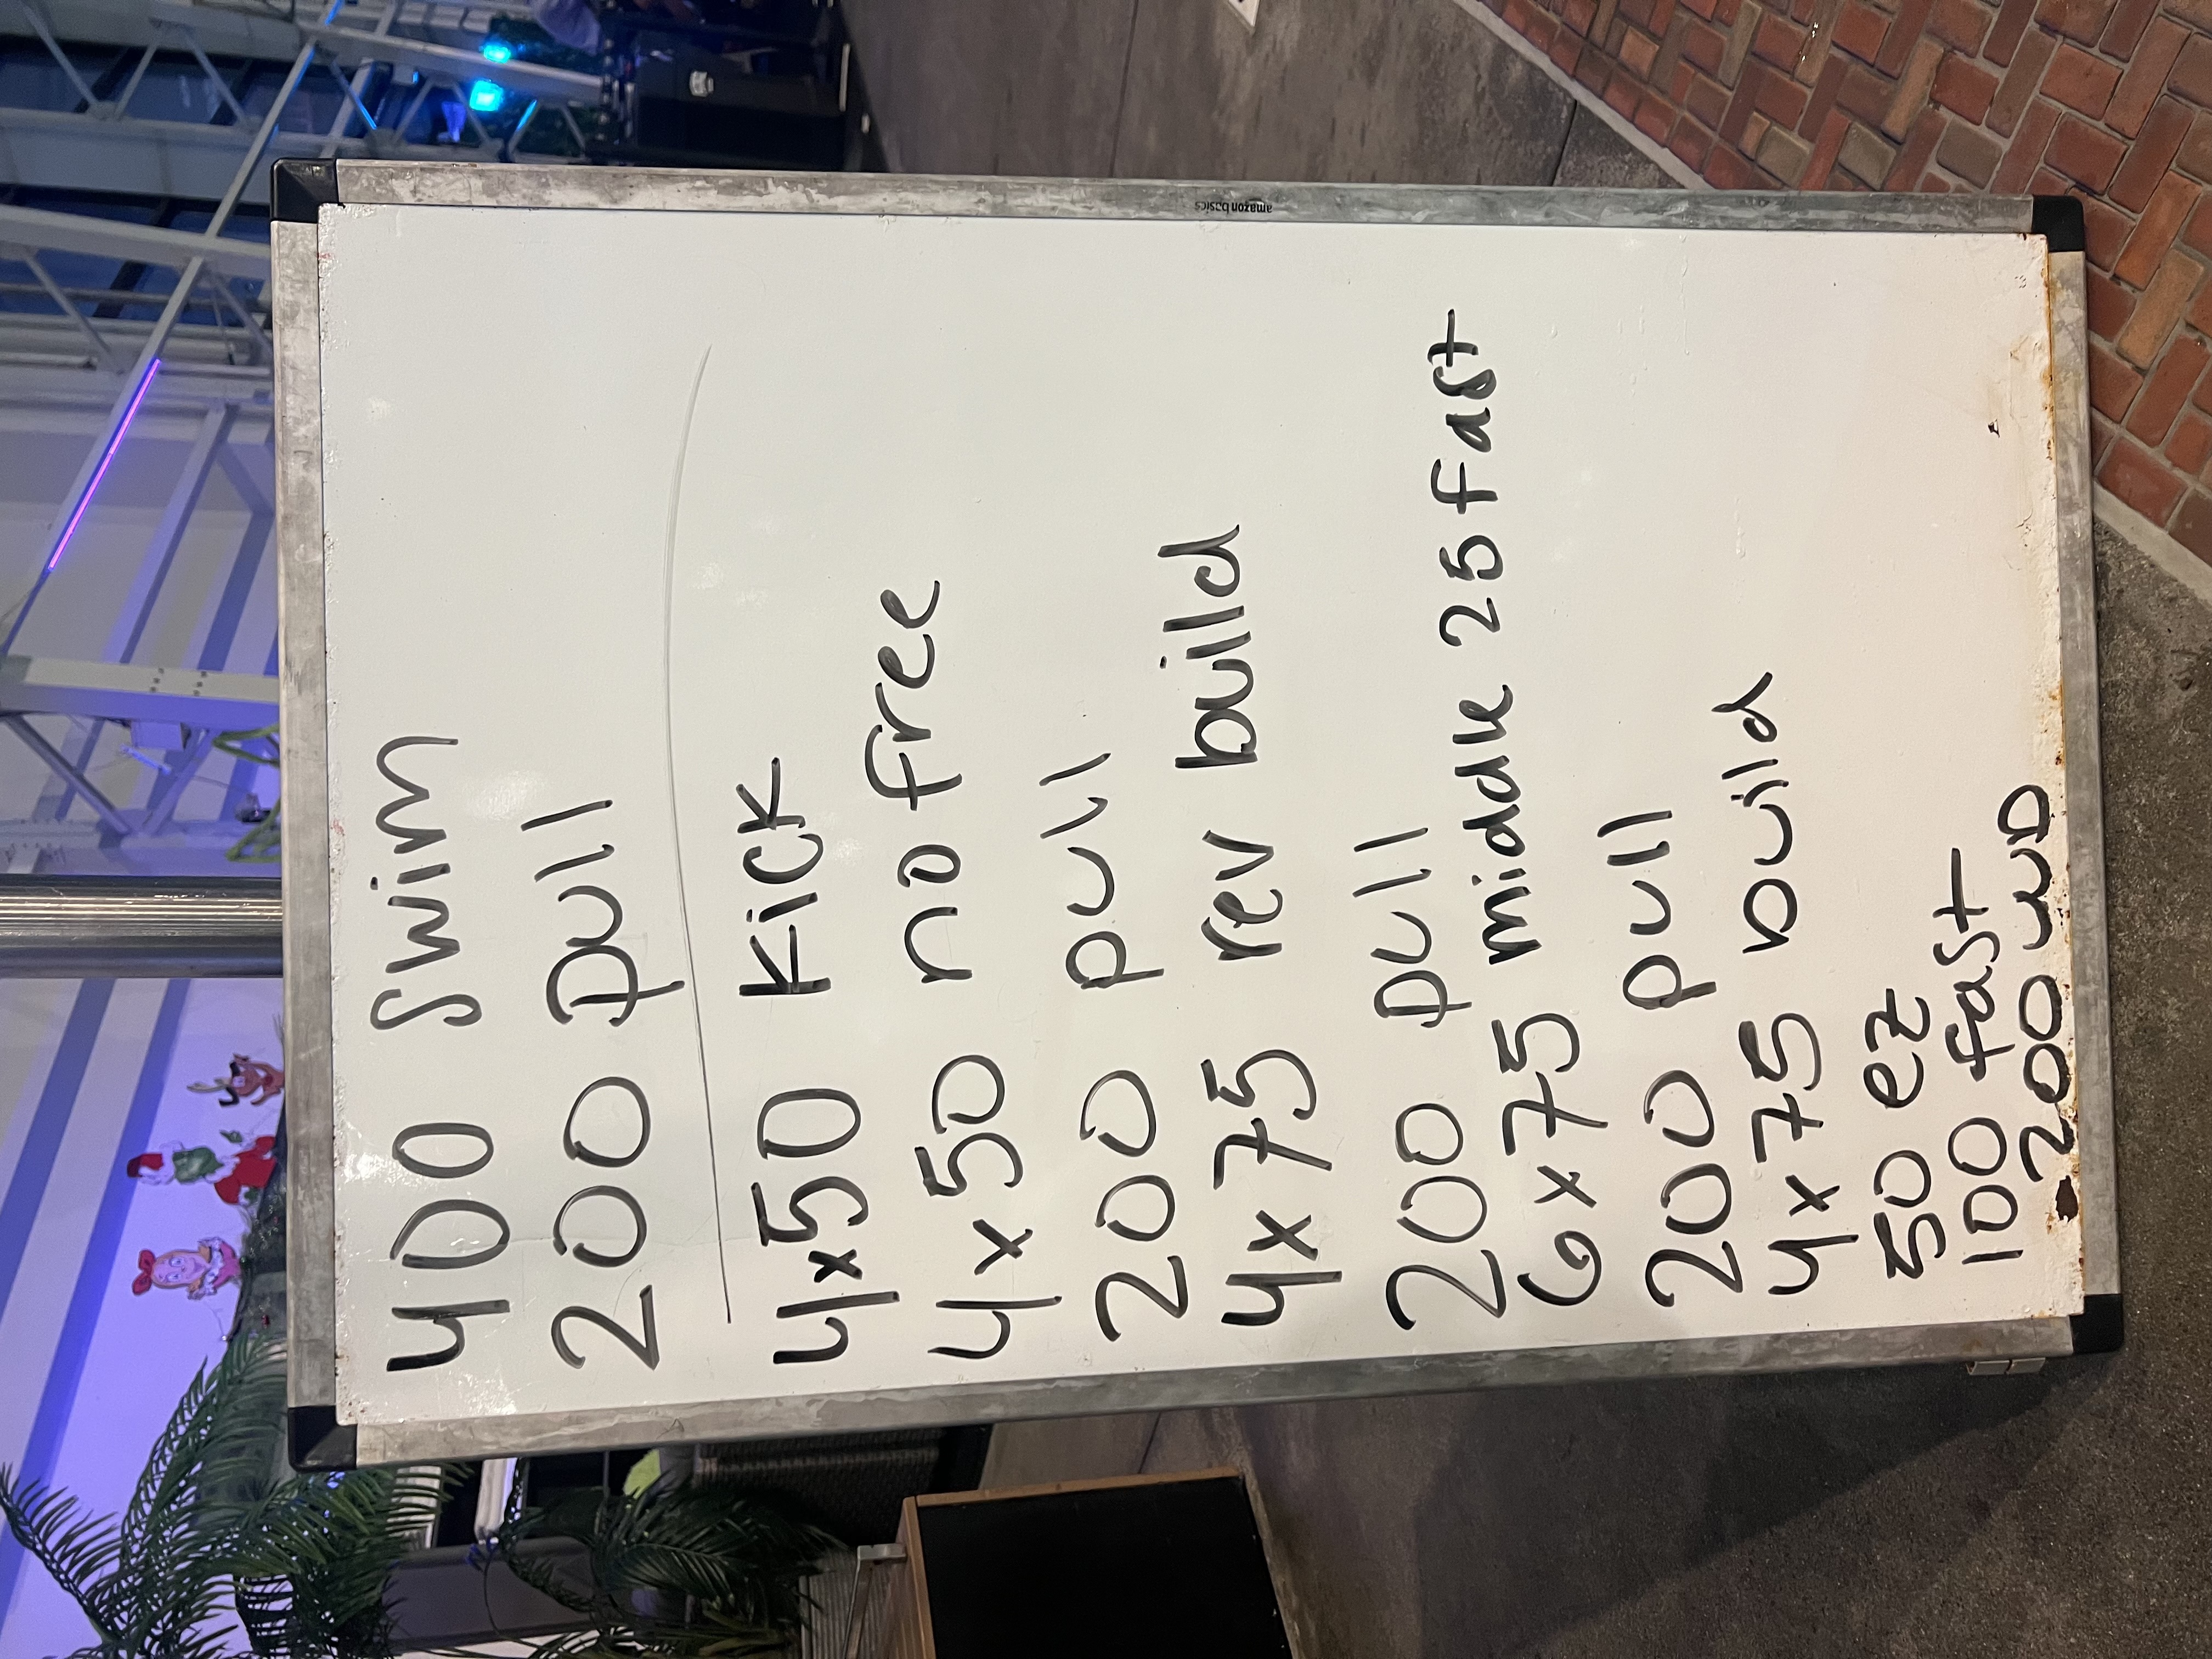 400 swim
200 pull
4x50 Kick
4x50 no free
200 pull
4x75 rev build
200 pull
6x75 middle 25 fast
200 pull
4x75 build
50 ez
100 fast
200 WD
amazon basics